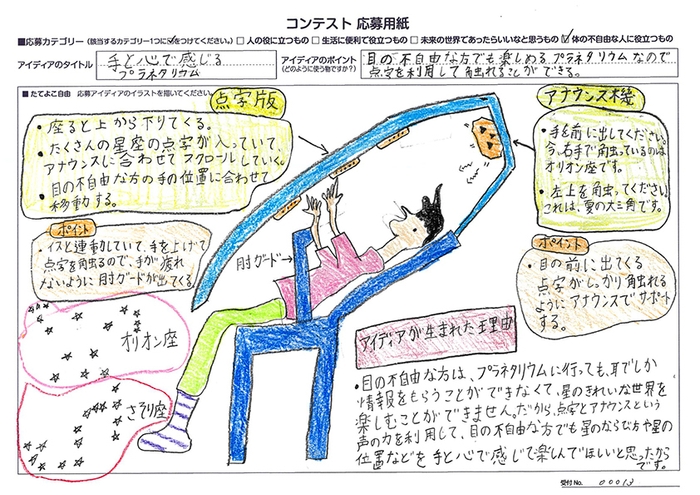 コンテスト 応募用紙
■応募カテゴリー（該当するカテゴリー1つに☑をつけてください。） □ 人の役に立つもの □ 生活に便利で役立つもの □ 未来の世界であったらいいなと思うもの ☑ 体の不自由な人に役立つもの
アイディアのタイトル
手と心で感じる
プラネタリウム
アイディアのポイント
（どのように使う物ですか？）
目の不自由な方でも楽しめるプラネタリウムなので
点字を利用して触れることができる。
■ たてよこ自由 応募アイディアのイラストを描いてください
点字版
・座ると上から下りてくる。
・たくさんの星座の点字が入っていて、
アナウンスに合わせてスクロールしていく。
・目の不自由な方の手の位置に合わせて
移動する。
ポイント
・イスと連動していて、手を上げて
点字を触るので、手が疲れ
ないように肘ガードが出てくる。
肘ガード
アナウンス機
・手を前に出してください。
今、右手で触っているのは
オリオン座です。
・左上を触ってください。
これは、夏の大三角です。
ポイント
・目の前に出てくる
点字がしっかり触れる
ようにアナウンスでサポート
する。
オリオン座
さそり座
アイディアが生まれた理由
・目の不自由な方は、プラネタリウムに行っても、耳でしか
情報をもらうことができなくて、星のきれいな世界を
楽しむことができません。だから、点字とアナウンスという
声の力を利用して、目の不自由な方でも星のならび方や星の
位置などを手と心で感じて楽しんでほしいと思ったから
です。
受付No. 00013